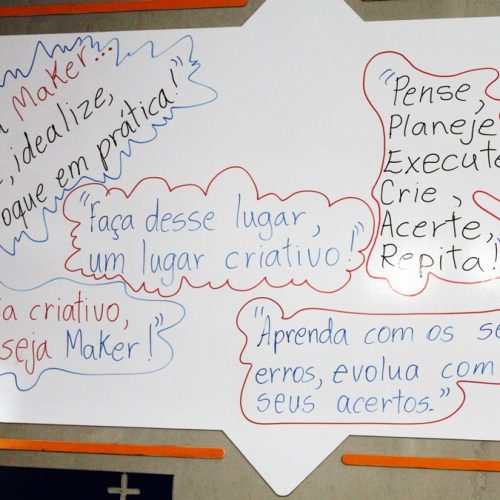 Maker...
, idealize,
oque em prática!"
"Pense,
Planeje
Execute
Crie,
Acerte,
Repita!
"Faça desse lugar,
um lugar criativo!"
a criativo,
seja Maker!"
"Aprenda com os se
erros, evolua com
seus acertos."